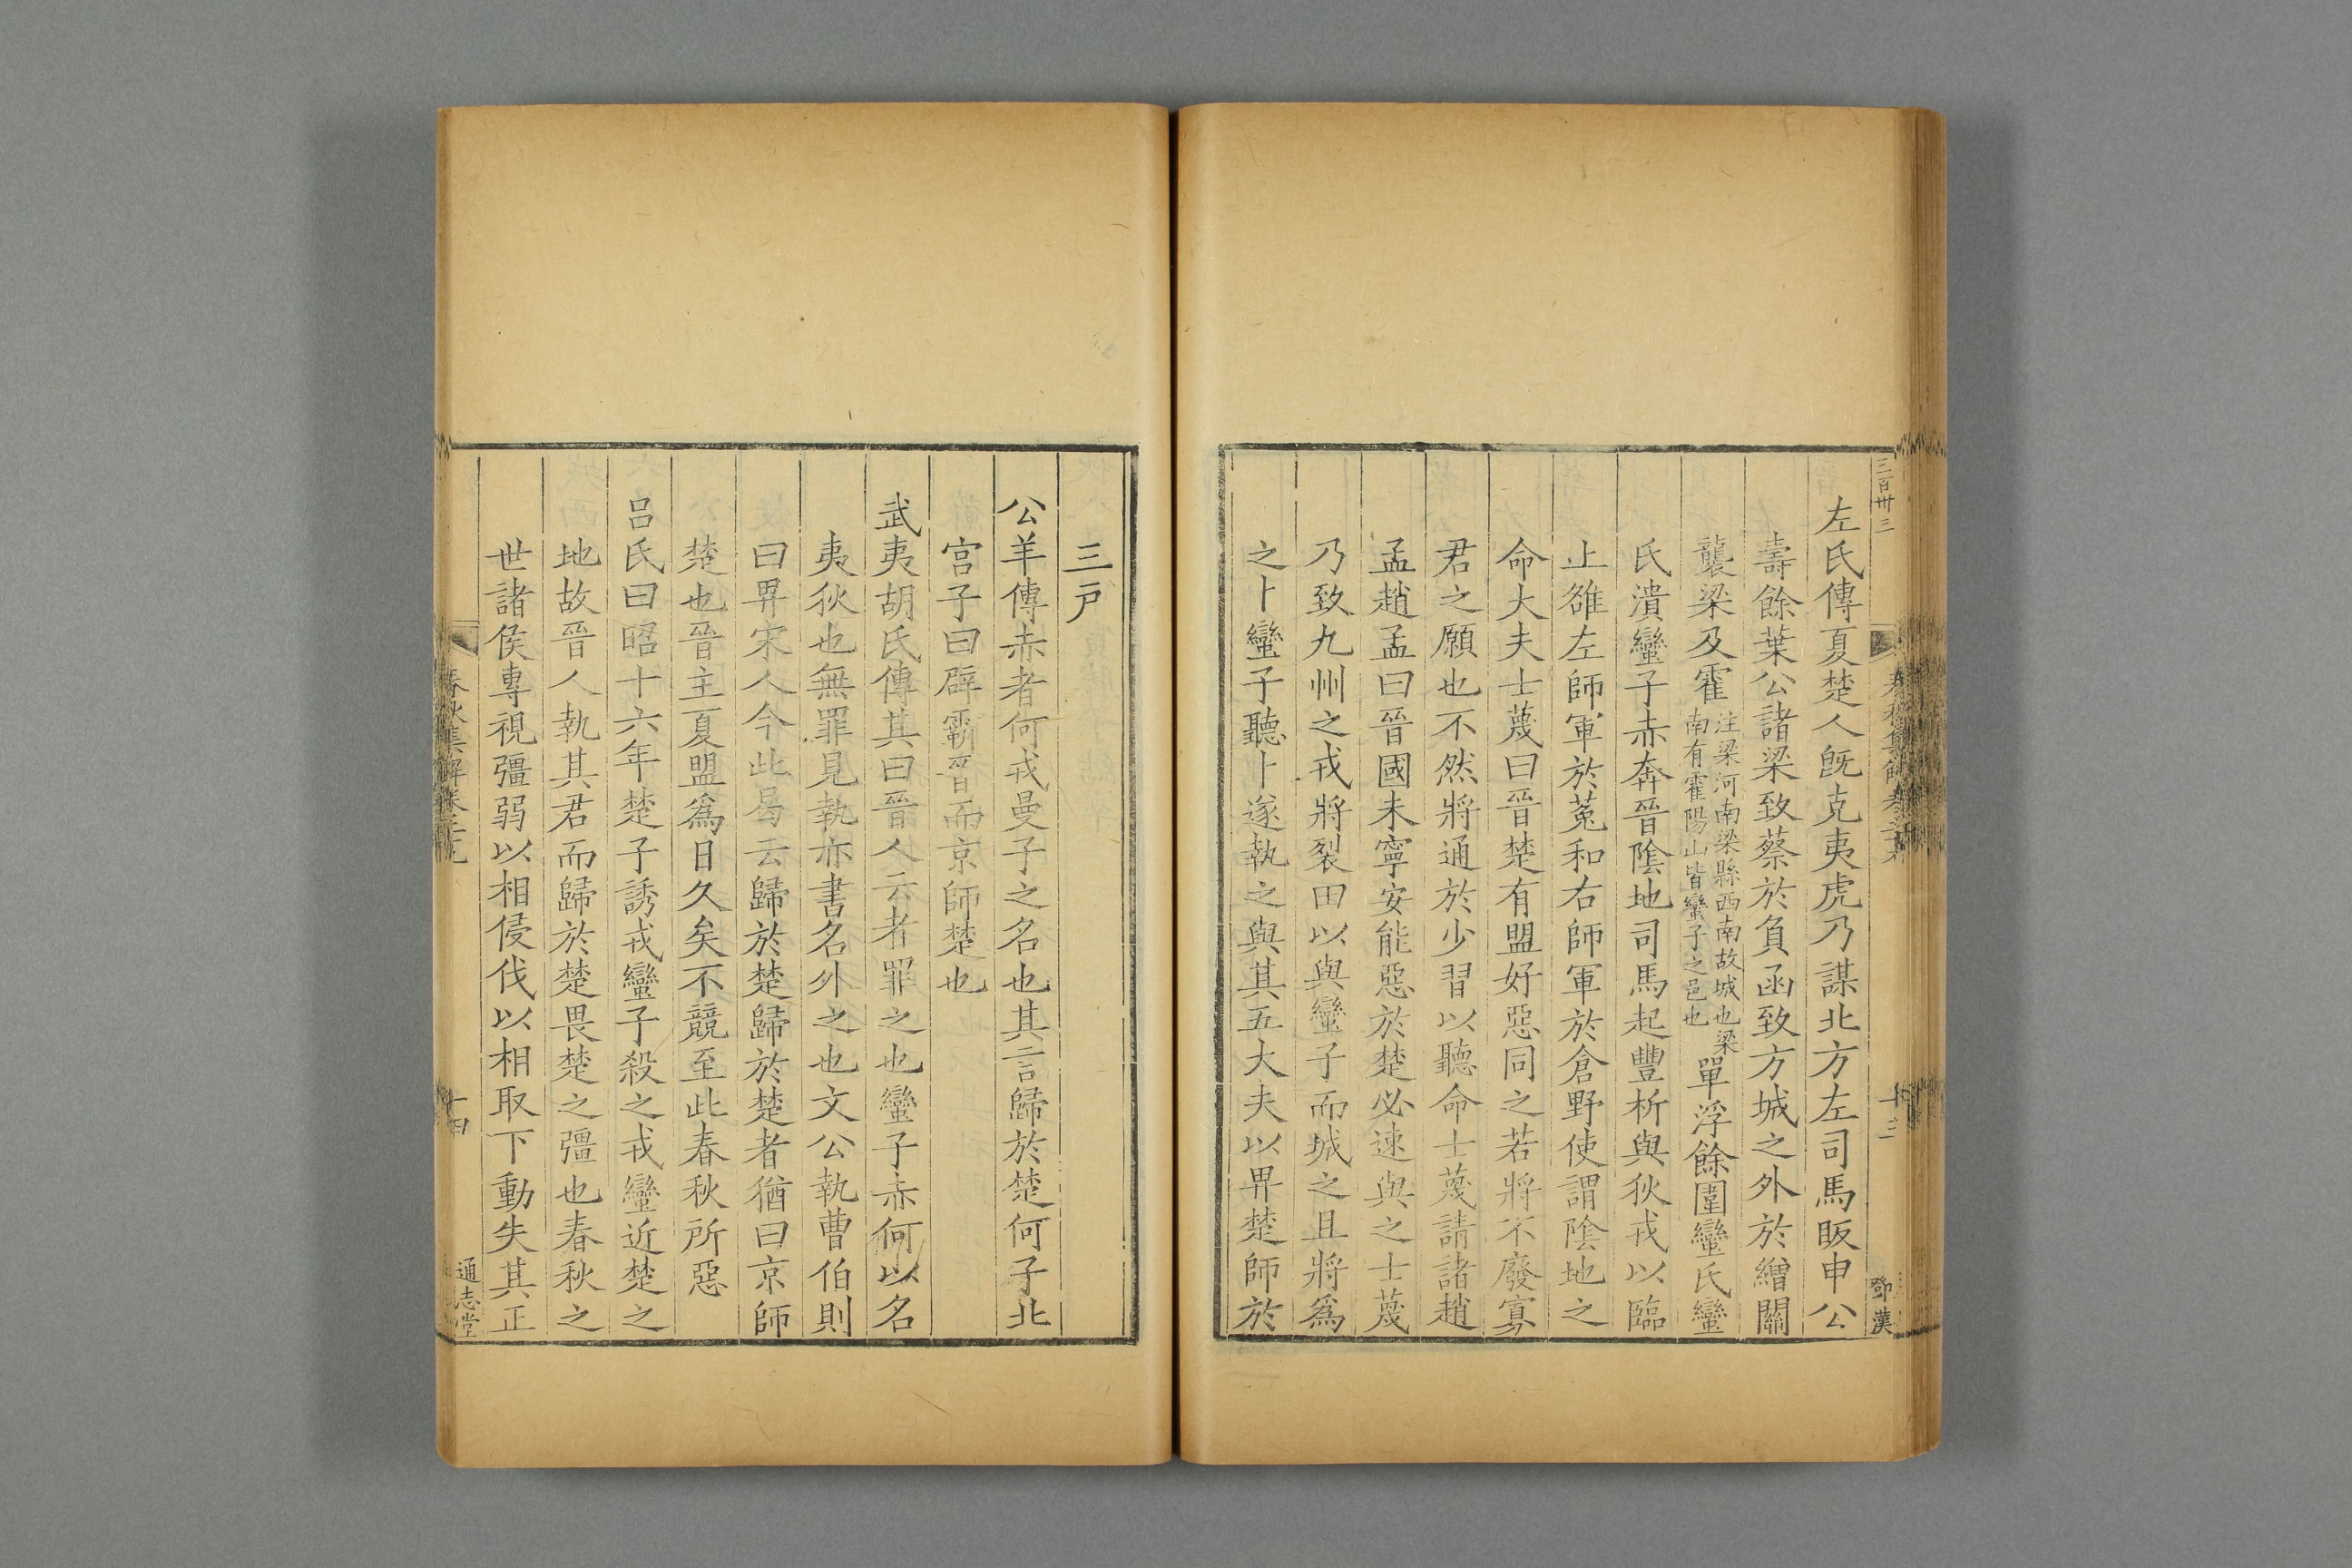 三百卅三
鄧漢
左氏傳夏楚人旣克夷虎乃謀北方左司馬眅申公
壽餘葉公諸梁致蔡於負函致方城之外於繒關
襲梁及霍注梁河南梁縣西南故城也梁南有霍陽山皆蠻子之邑也單浮餘圍蠻氏蠻
氏潰蠻子赤奔晉陰地司馬起豐析與狄戎以臨
上雒左師軍於菟和右師軍於倉野使謂陰地之
命大夫士蔑曰晉楚有盟好惡同之若將不廢寡
君之願也不然將通於少習以聽命士蔑請諸趙
孟趙孟曰晉國未寧安能惡於楚必速與之士蔑
乃致九州之戎將裂田以與蠻子而城之且將爲
之卜蠻子聽卜遂執之與其五大夫以畀楚師於
三戸
公羊傳赤者何戎曼子之名也其言歸於楚何子北
宫子曰辟霸晉而京師楚也
武夷胡氏傳其曰晉人云者罪之也蠻子赤何以名
夷狄也無罪見執亦書名外之也文公執曹伯則
曰畀宋人今此曷云歸於楚歸於楚者猶曰京師
楚也晉主夏盟爲日久矣不競至此春秋所惡
呂氏曰昭十六年楚子誘戎蠻子殺之戎蠻近楚之
地故晉人執其君而歸於楚畏楚之彊也春秋之
世諸侯專視彊弱以相侵伐以相取下動失其正
春秋集解卷
十四
通志堂